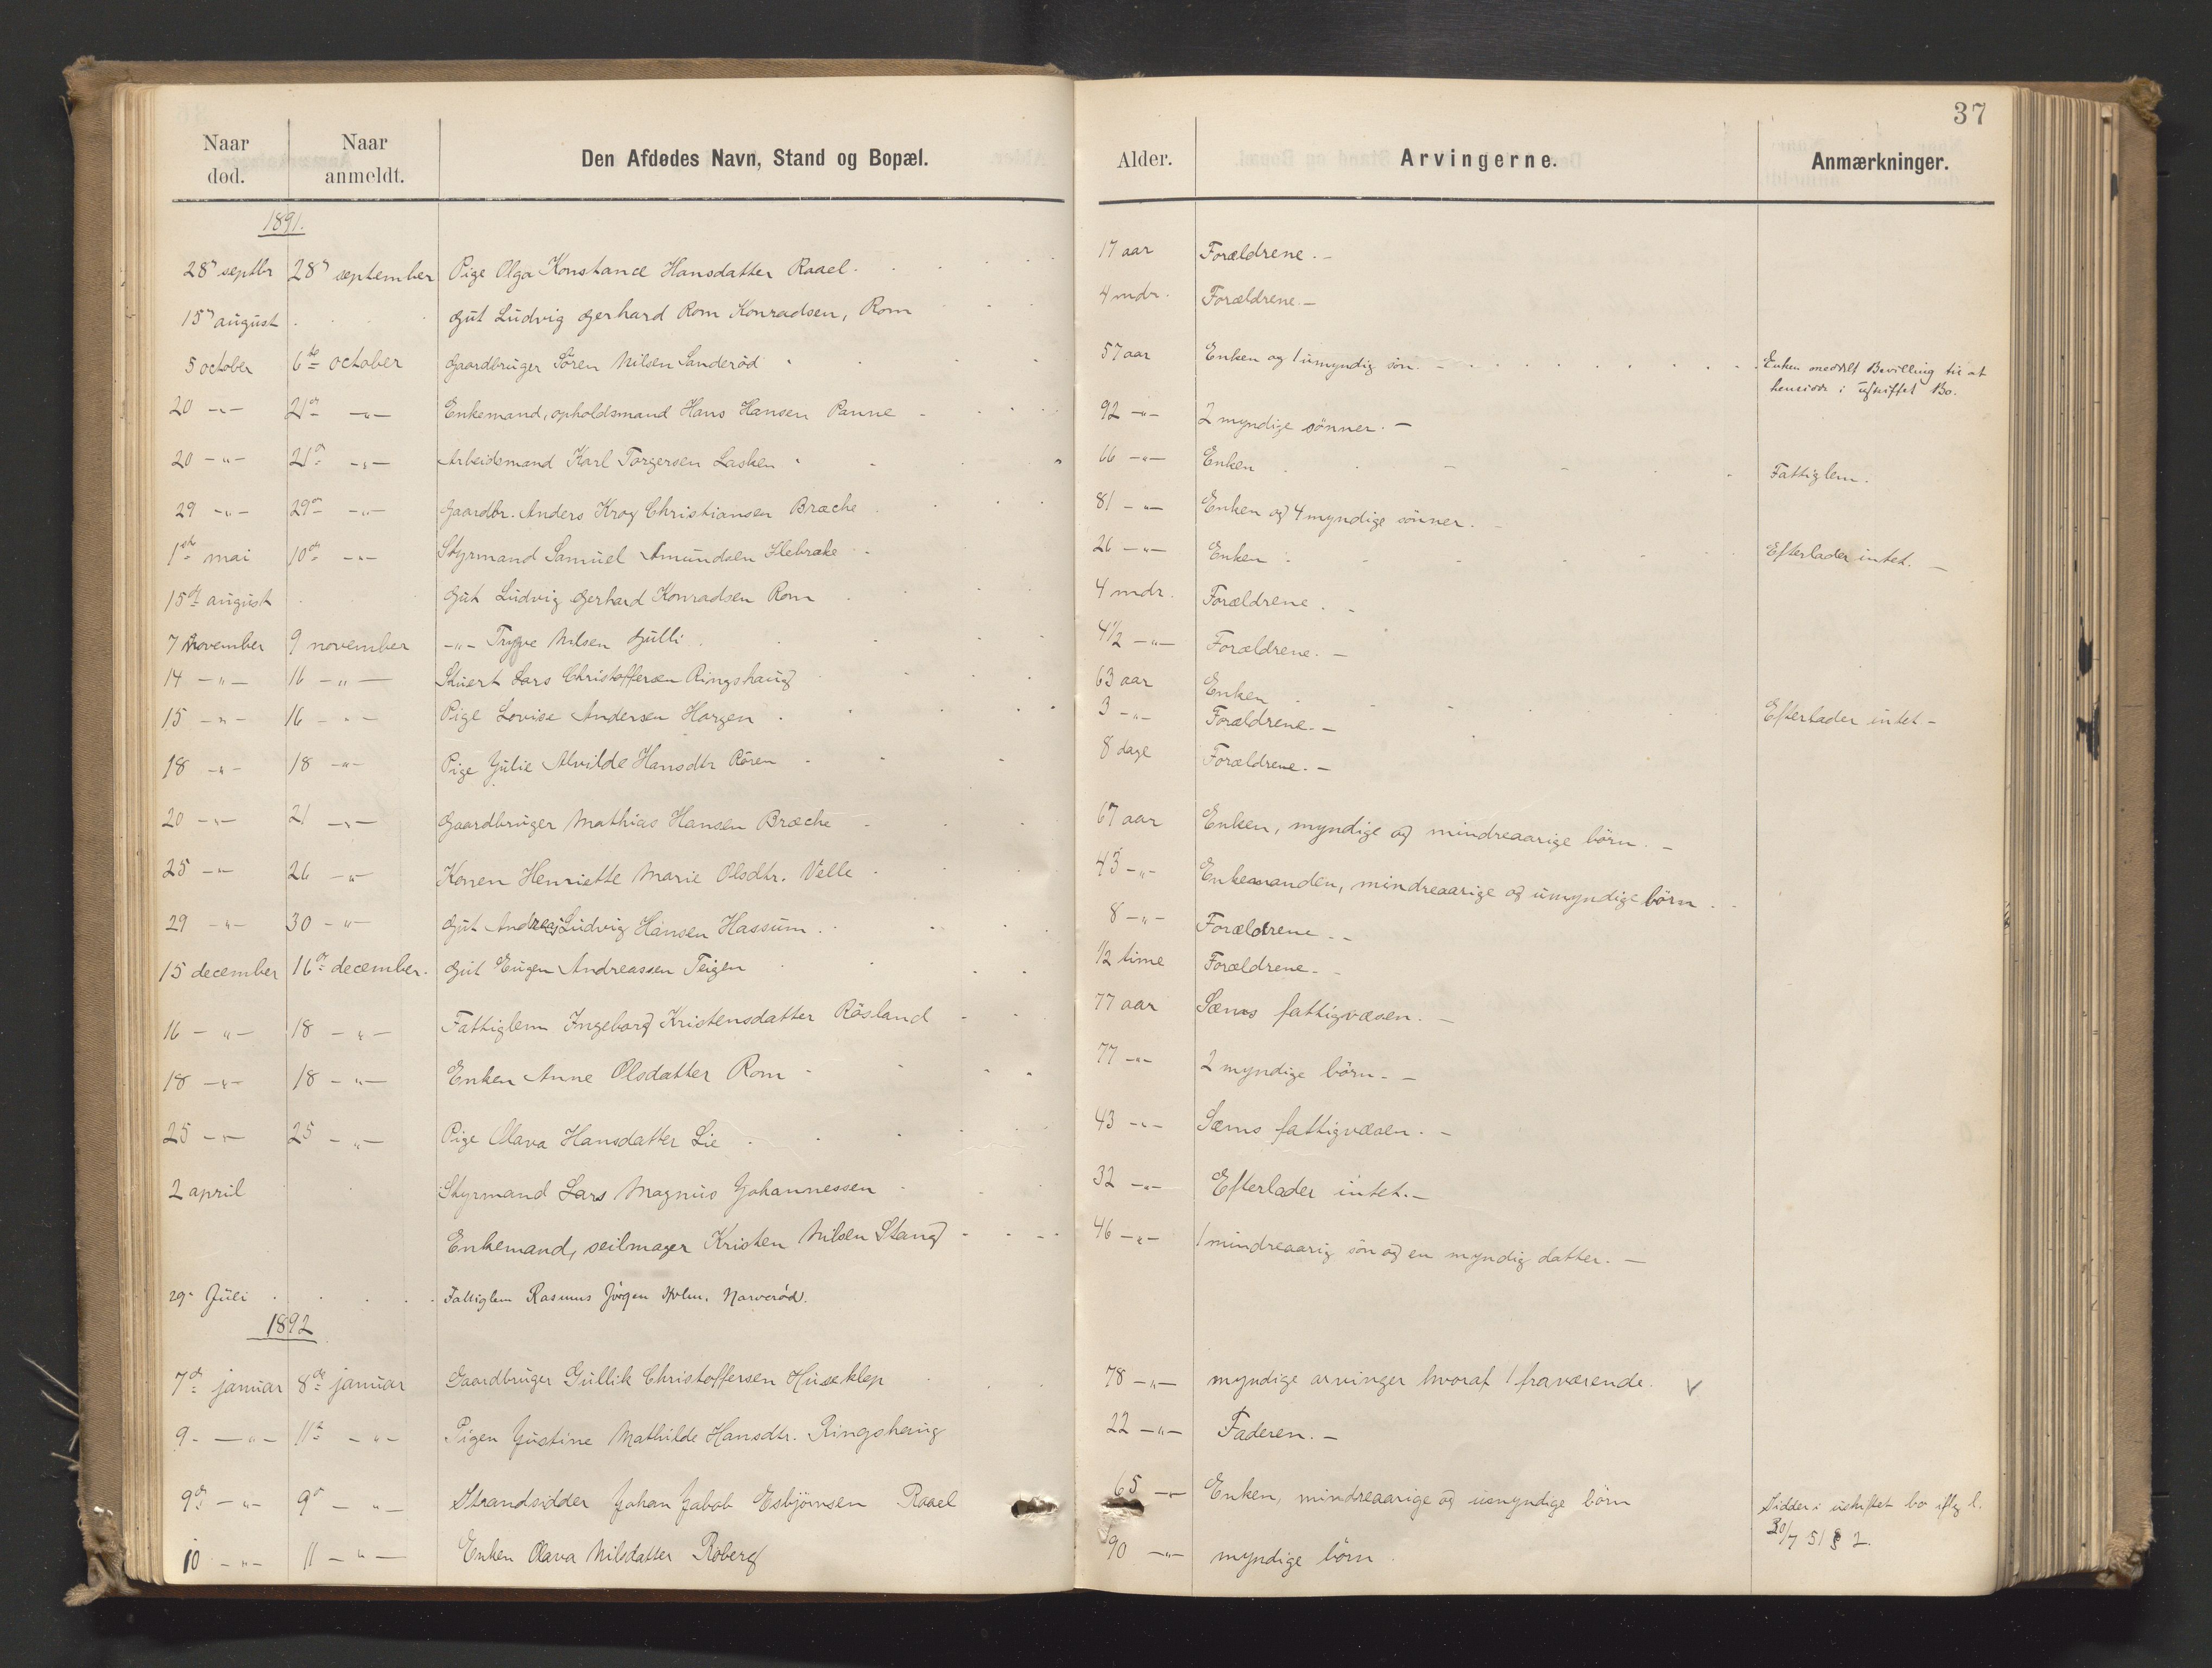 37
Naar død. Naar anmeldt. Den Afdødes Navn, Stand og Bopæl. Alder. Arvingerne. Anmærkninger.
1891.
28de septbr 28de september Pige Olga Konstance Hansdatter Raael 17 aar Forældrene. -
15de august Gut Ludvig Gerhard Rom Konradsen, Rom 4 mdr. Forældrene. -
5 october 6te october Gaardbruger Sören Nilsen Sanderöd 57 aar Enken og 1 umyndig sön. - Enken meddelt Bevilling til at
hensidde i uskiftet Bo.
20 -"- 21de -"- Enkemand, opholdsmand Hans Hansen Panne 92 -"- 2 myndige sönner. -
20 -"- 21de -"- Arbeidsmand Karl Torgersen Lasken 66 -"- Enken Fattiglem.
29 -"- 29de -"- Gaardbr. Anders Krog Christiansen Bræche 81 -"- Enken og 4 myndige sönner. -
1ste mai 10de -"- Styrmand Samuel Amundsen Ilebræke 26 -"- Enken Efterlader intet. -
15de august Gut Ludvig Gerhard Konradsen Rom 4 mdr. Forældrene. -
7 november 9 november -"- Trygve Nilsen Gulli 4 1/2 -"- Forældrene. -
14 -"- 16 -"- Stuert Lars Christoffersen Ringshaug 63 aar Enken
15 -"- 16 -"- Pige Lovise Andersen Horgen 3 -"- Forældrene. - Efterlader intet -
18 -"- 18 -"- Pige Julie Alvilde Hansdtr Rören 8 dage Forældrene. -
20 -"- 21 -"- Gaardbruger Mathias Hansen Bræche 67 aar Enken, myndige og mindreaarige börn. -
25 -"- 26 -"- Konen Henriette Marie Olsdtr. Velle 43 -"- Enkemanden, mindreaarige og umyndige börn.
29 -"- 30 -"- Gut Andreas Ludvig Hansen Hassum 8 -"- Forældrene. -
15 december 16de december. Gut Eugen Andreassen Teigen 1/2 time Forældrene. -
16 -"- 18 -"- Fattiglem Ingeborg Kristensdatter Rösland 77 aar Sæms fattigvæsen. -
18 -"- 18 -"- Enken Anne Olsdatter Rom 77 -"- 2 myndige börn. -
25 -"- 25 -"- Pige Olava Hansdatter Lie 43 -"- Sæms fattigvæsen. -
2 april Styrmand Lars Magnus Johannessen 32 -"- Efterlader intet. -
Enkemand, seilmager Kristen Nilsen Stang 46 -"- 1 mindreaarig sön og en myndig datter. -
29. Juli Fattiglem Rasmus Jörgen Holm. Narveröd.
1892
7de januar 8de januar Gaardbruger Gullik Christoffersen Huseklep 78 -"- myndige arvinger hvoraf 1 fraværende. V
9. -"- 11te -"- Pigen Justine Mathilde Hansdtr. Ringshaug 22 -"- Faderen. -
9de -"- 9de -"- Strandsidder Johan Jakob Esbjörnsen Raael 65 -"- Enken, mindreaarige og umyndige börn Sidder i uskiftet bo iflg l.
30/7 51 § 2.
10 -"- 11 -"- Enken Olava Nilsdatter Roberg 90 -"- myndige börn